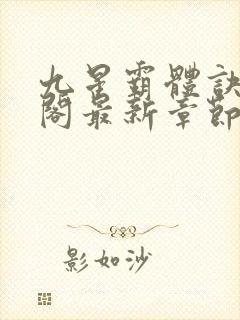 九星霸體訣
閣最新章節
影如沙